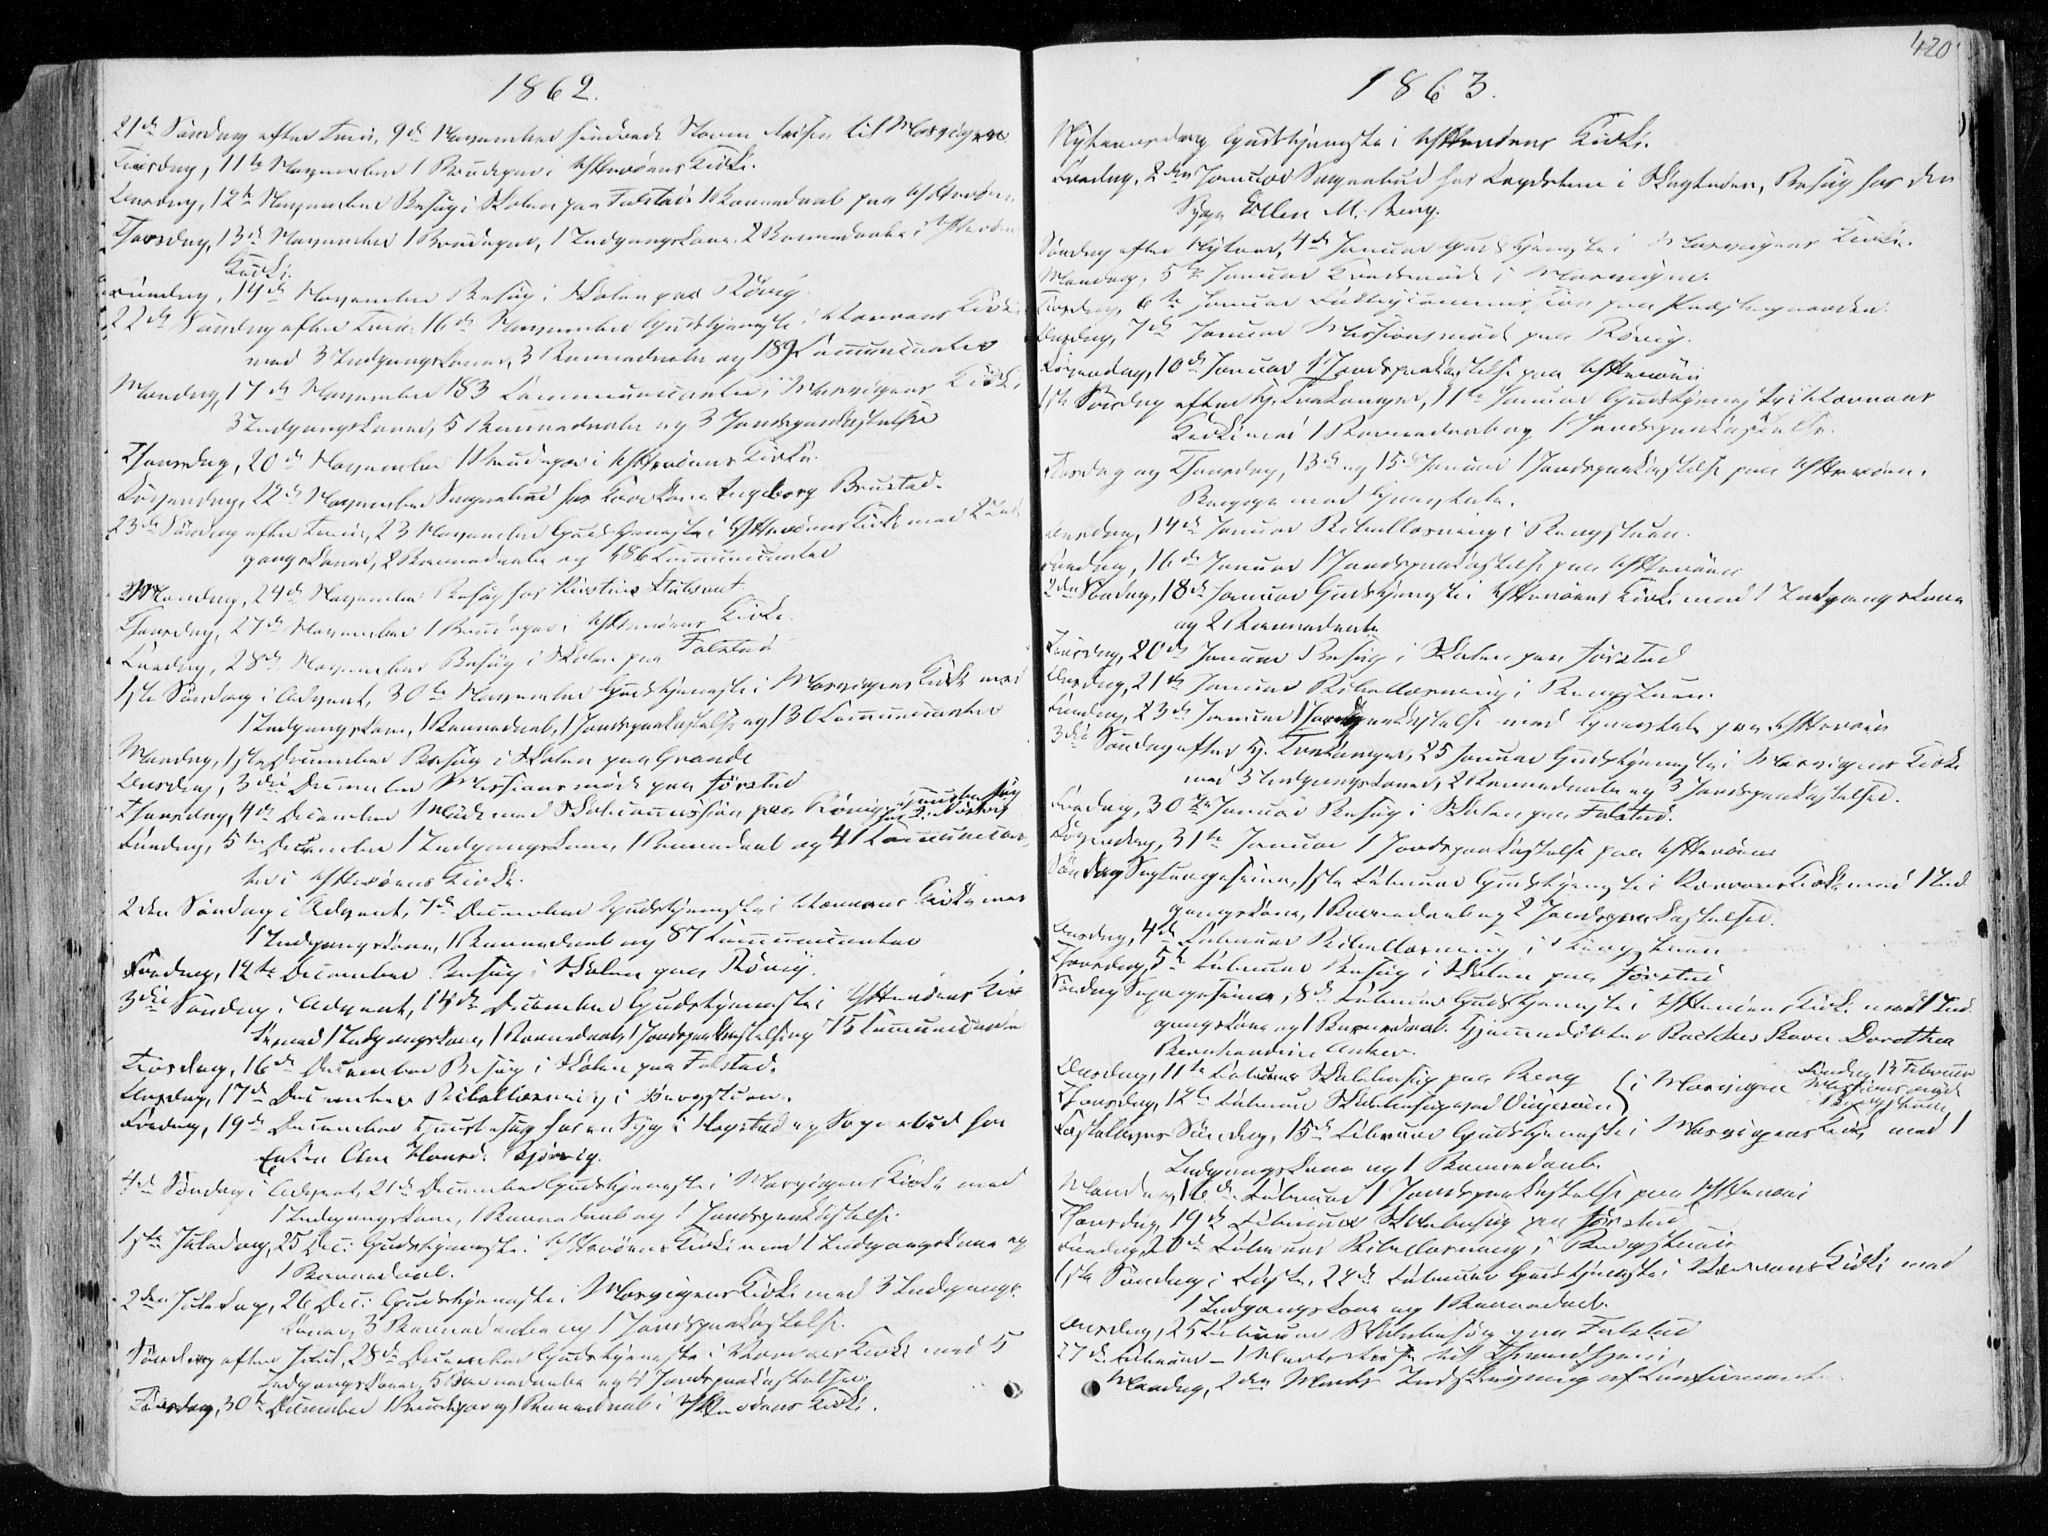 1862.
21de Søndag efter Trin. 9de November hindrede Storm Reisen til Mosvigen
Tirsdag, 11te November 1 Brudepar i Ytterøens Kirke.
Onsdag, 12te November Besøg i Skolen paa Falstad. 1 Barnedaab paa Ytterøen.
Thorsdag, 13de November 1 Brudepar, 1 Indgangskone, 2 Barnedaabe i Ytterøens
Kirke.
Fredag, 14de November Besøg i Skolen paa Rövig
22de Søndag efter Trin. 16de November Gudstjeneste i Kirke
med 3 Indgangskoner, 3 Barnedaabe og 189 Communicanter
Mandag, 17de November 183 Communicanter i Mosvigens Kirke
3 Indgangskoner, 5 Barnedaabe og 3 Jordspaakastelser
Thorsdag, 20de November 1 Brudepar i Ytterøens Kirke.
Løverdag, 22de November Sognebud hos Ingeborg Brustad.
23de Søndag efter Trin. 23 November Gudstjeneste i Ytterøens Kirke med 2 Ind
gangskoner, 2 Barnedaabe og 186 Communicanter
Mandag, 24de November Besøg hos Kirstine
Thorsdag, 27de November 1 Brudepar i Ytterøens Kirke.
Fredag, 28de November Besøg i Skolen paa Falstad
1ste Søndag i Advent, 30te November Gudstjeneste i Mosvigens Kirke med
1 Indgangskone, 1 Barnedaab, 1 Jordspaakastelse og 130 Communicanter
Mandag, 1ste December Besøg i Skolen paa Grande
Onsdag, 3die December Missionsmøde paa Jörstad
Thorsdag, 4de December Møde med Skolecommission paa Rövig
Fredag, 5te December 1 Indgangskone, 1 Barnedaab og 41 Communican
ter i Ytterøens Kirke.
2den Søndag i Advent, 7de December Gudstjeneste i Kirke med
1 Indgangskone, 1 Barnedaab og 87 Communicanter
Fredag, 12te December Besøg i Skolen paa Rövig.
3die Søndag i Advent, 14de December Gudstjeneste i Ytterøens Kir
ke med 1 Indgangskone, 1 Barnedaab, 1 Jordspaakastelse og 75 Communicanter
Tirsdag, 16de December Besøg i Skolen paa Falstad.
Onsdag, 17de December Bibellæsning i Borgstuen.
Fredag, 19de December hos en Syg i og Sognebud hos
Enken Ane Hansd. Bjørvig.
4de Søndag i Advent, 21de December Gudstjeneste i Mosvigens Kirke med
1 Indgangskone, 1 Barnedaab og 1 Jordspaakastelse.
1ste Juledag, 25 Dec. Gudstjeneste i Ytterøens Kirke med 1 Indgangskone og
1 Barnedaab.
2den Juledag, 26 Dec. Gudstjeneste i Mosvigens Kirke med 3 Indgangs
koner, 3 Barnedaabe og 1 Jordspaakastelse.
Søndag efter Juul, 28de December Gudstjeneste i Kirke med 5
Indgangskoner, 5 Barnedaabe og 4 Jordspaakastelser
Tirsdag, 30te December 1 Brudepar og 1 Barnedaab i Ytterøens Kirke.
420
1863.
Nytaarsdag Gudstjeneste i Ytterøens Kirke.
Fredag, 2den Januar Sognebud hos i Besøg hos den
Syge Ellen M. Berg.
Søndag efter Nytaar, 4de Januar Gudstjeneste i Mosvigens Kirke.
Mandag, 5te Januar i Mosvigen.
Tirsdag, 6te Januar Fattigcommission paa Præstegaarden.
Onsdag, 7de Januar Missionsmøde paa Rövig.
Løverdag, 10de Januar 1 Jordspaakastelse paa Ytterøen
1ste Søndag efter H. Trekonger, 11te Januar Gudstjeneste i
Kirke med 1 Barnedaab og 1 Jordspaakastelse.
Tirsdag og Thorsdag, 13de og 15de Januar 1 Jordspaakastelse paa Ytterøen,
Begge med Gravtale.
Onsdag, 14de Januar Bibellæsning i Borgstuen.
Fredag, 16de Januar 1 Jordspaakastelse paa Ytterøen
2den Søndag, 18de Januar Gudstjeneste i Ytterøens Kirke med 1 Indgangskone
og 2 Barnedaabe
Tirsdag, 20de Januar Besøg i Skolen paa Jörstad
Onsdag, 21de Januar Bibellæsning i Borgstuen.
Fredag, 23de Januar 1 Jordspaakastelse med Gravtale paa Ytterøen
3die Søndag efter H. Trekonger, 25 Januar Gudstjeneste i Mosvigens Kirke
med 3 Indgangskoner, 2 Barnedaabe og 3 Jordspaakastelser.
Fredag, 30te Januar Besøg i Skolen paa Falstad.
Løverdag, 31te Januar 1 Jordspaakastelse paa Ytterøen
Søndag Septuagesima, 1ste Februar Gudstjeneste i Kirke med 1 Ind
gangskone, 1 Barnedaab og 2 Jordspaakastelser.
Onsdag, 4de Februar Bibellæsning i Borgstuen
Thorsdag, 5te Februar Besøg i Skolen paa Jörstad
Søndag Sexagesima, 8de Februar Gudstjeneste i Ytterøens Kirke med 1 Ind
gangskone og 1 Barnedaab. Hjemmedøbte Backhes Barn Dorothea
Bernhardine Anker.
Onsdag, 11te Februar Skolebesøg paa Berg
Thorsdag, 12te Februar Skolebesøg ved
i Mosvigen
Fredag 13 Februar
Missionsmøde
i Borgstuen
Fastelavns Søndag, 15de Februar Gudstjeneste i Mosvigens Kirke med 1
Indgangskone og 1 Barnedaab.
Mandag, 16de Februar 1 Jordspaakastelse paa Ytterøen
Thorsdag, 19de Februar Skolebesøg paa Jörstad
Fredag, 20de Februar Bibellæsning i Borgstuen
1ste Søndag i Faste, 22de Februar Gudstjeneste i Kirke med
1 Indgangskone og 1 Barnedaab.
Onsdag, 25 Februar Skolebesøg paa Falstad
27de Februar - 1 Marts Reise til Throndhjem.
Mandag, 2den Marts Indskrivning af Confirmanter.